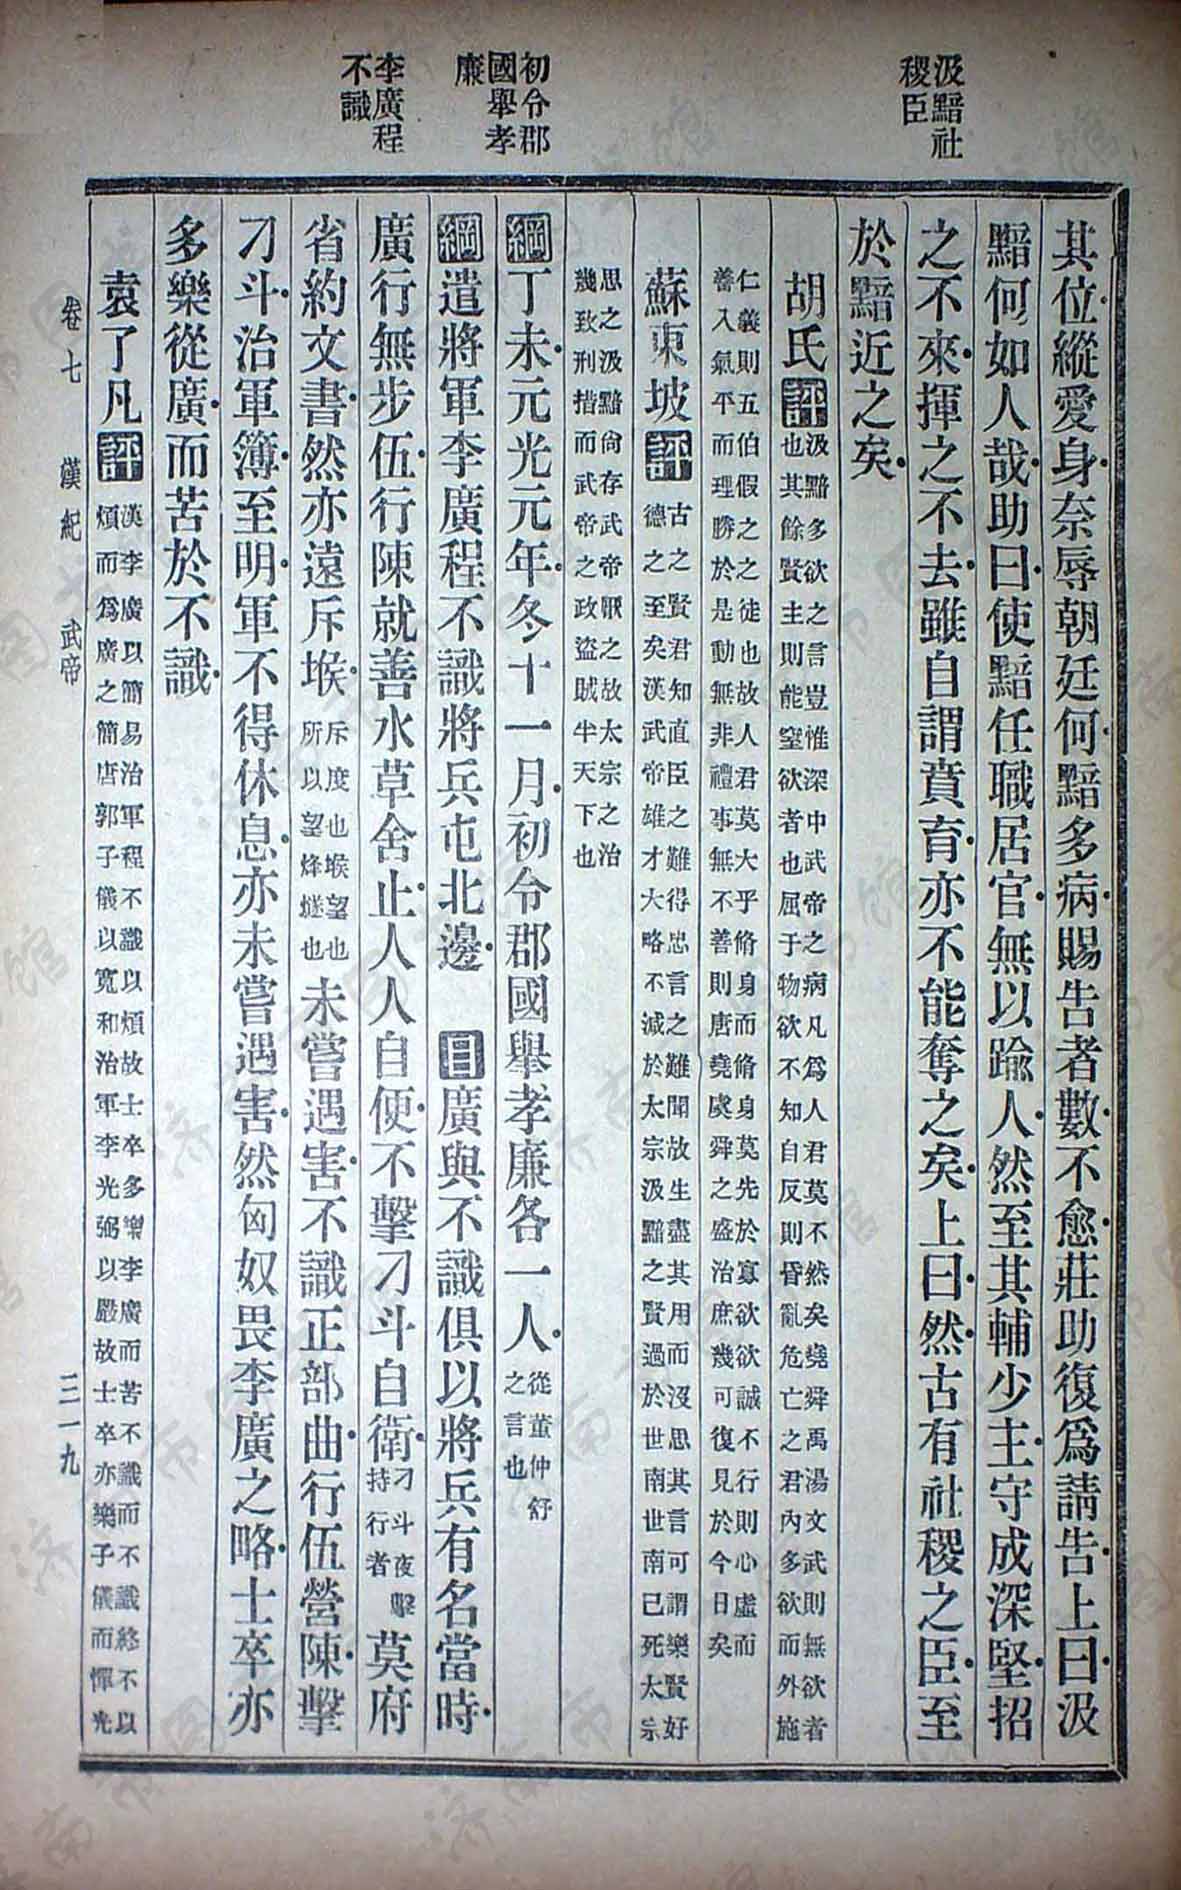 汲黯社
稷臣
初令郡
國舉孝
廉
李廣程
不識
其位縱愛身奈辱朝廷何黯多病賜告者數不愈莊助復爲請告上曰汲
黯何如人哉助曰使黯任職居官無以踰人然至其輔少主守成深堅招
之不來揮之不去雖自謂賁育亦不能奪之矣上曰然古有社稷之臣至
於黯近之矣
胡氏評汲黯多欲之言豈惟深中武帝之病凡爲人君莫不然矣堯舜禹湯文武則無欲者
也其餘賢主則能窒欲者也屈于物欲不知自反則昏亂危亡之君內多欲而外施
仁義則五伯假之之徒也故人君莫大乎脩身而脩身莫先於寡欲欲誠不行則心虛而
善入氣平而理勝於是動無非禮事無不善則唐堯虞舜之盛治庶幾可復見於今日矣
蘇東坡評古之賢君知直臣之難得忠言之難聞故生盡其用而沒思其言可謂樂賢好
德之至矣漢武帝雄才大略不減於太宗汲黯之賢過於世南世南已死太宗
思之汲黯尙存武帝厭之故太宗之治
幾致刑措而武帝之政盜賊半天下也
綱丁未元光元年冬十一月初令郡國舉孝廉各一人從董仲舒
之言也
綱遣將軍李廣程不識將兵屯北邊 目廣與不識俱以將兵有名當時
廣行無步伍行陳就善水草舍止人人自便不擊刁斗自衛刁斗夜擊
持行者莫府
省約文書然亦遠斥堠斥度也堠望也
所以望烽燧也未嘗遇害不識正部曲行伍營陳擊
刁斗治軍簿至明軍不得休息亦未嘗遇害然匈奴畏李廣之略士卒亦
多樂從廣而苦於不識
袁了凡評漢李廣以簡易治軍程不識以煩故士卒多樂李廣而苦不識而不識終不以
煩而爲廣之簡唐郭子儀以寬和治軍李光弼以嚴故士卒亦樂子儀而憚光
卷七 漢紀 武帝 三一九